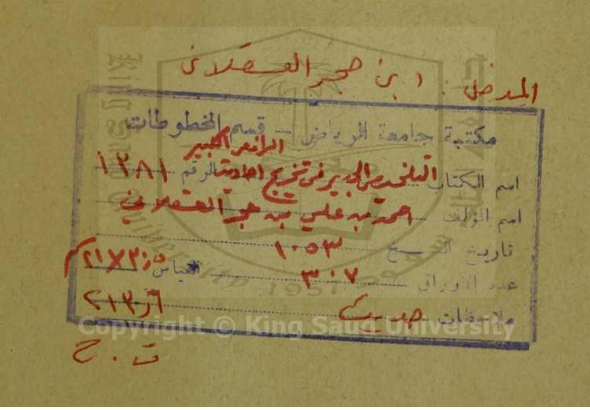 المدخل : ابن حجر العسقلاني
مكتبة جامعة الرياض - قسم المخطوطات
الرافعي الكبير
اسم الكتاب التلخيص الحبير في تخريج احاديث الرقم ١٣٨١
اسم المؤلف احمد بن علي بن حجر العسقلاني
تاريخ النسخ ١٠٥٣
عدد الأوراق ٣٠٧ القياس
ملاحظات حديث
Copyright © King Saud University
ت . ح